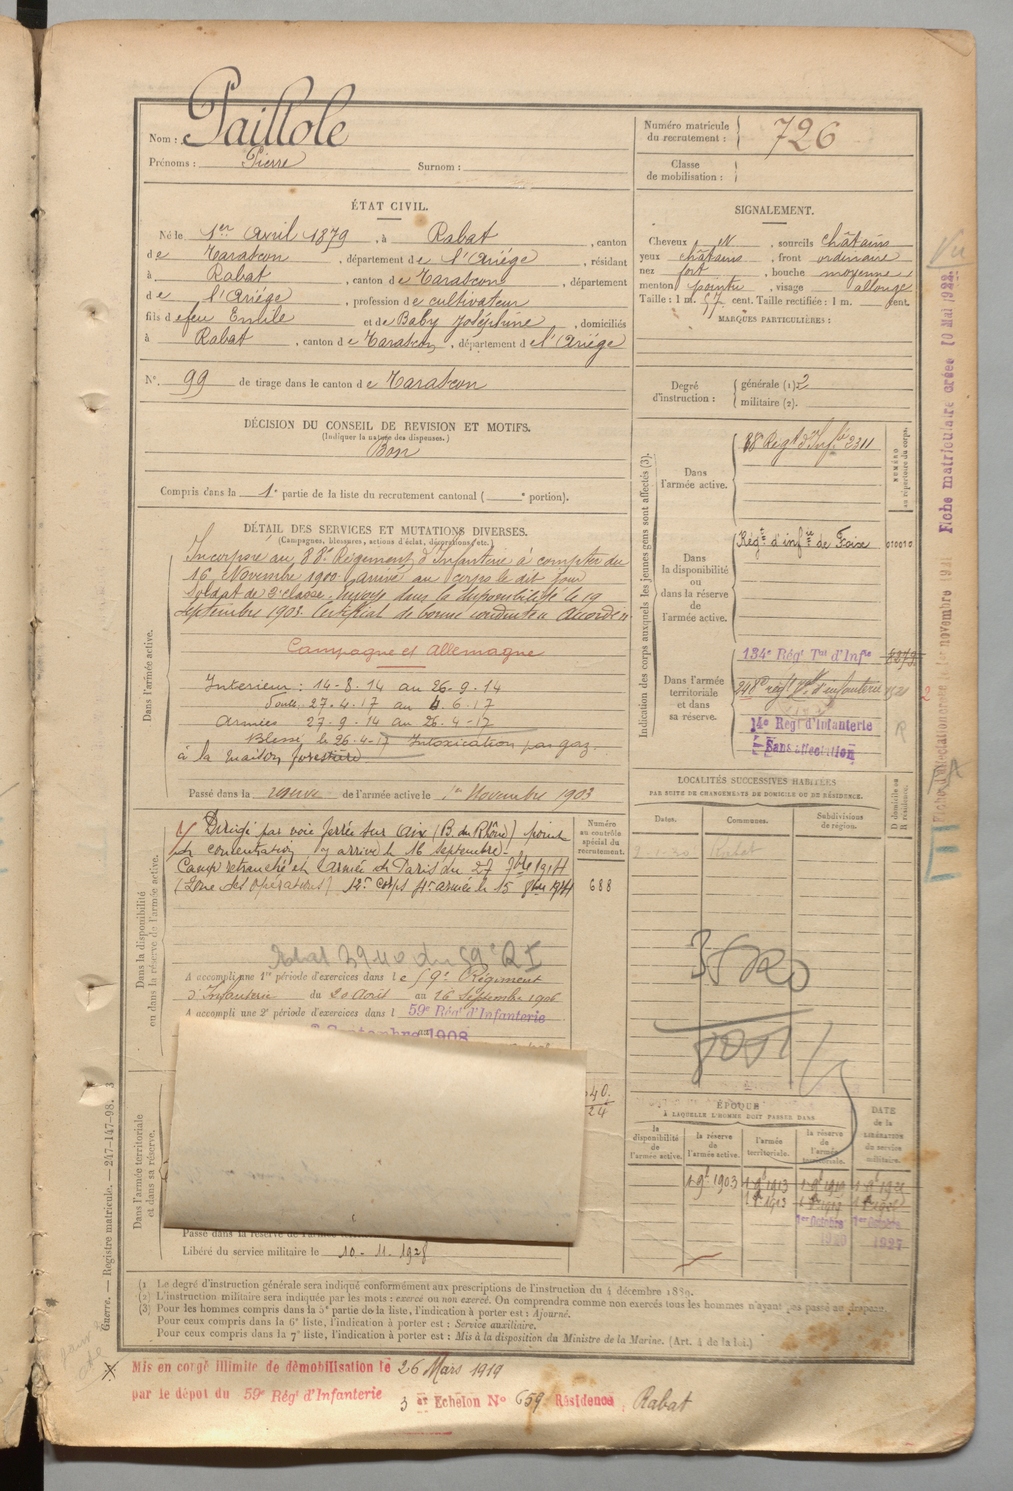 Nom : Paillole
Prénoms : Pierre Surnom :
ÉTAT CIVIL.
Né le 1er Avril 1879, à Rabat, canton
de Tarascon, département de l'Ariége, résidant
à Rabat, canton de Tarascon, département
de l'Ariége, profession de cultivateur
fils de feu Emile et de Baby Joséphine, domiciliés
à Rabat, canton de Tarascon, département de l'Ariége
N°. 99 de tirage dans le canton de Tarascon
DÉCISION DU CONSEIL DE REVISION ET MOTIFS.
(Indiquer la nature des dispenses.)
Bon
Compris dans la 1e partie de la liste du recrutement cantonal ( e portion).
DÉTAIL DES SERVICES ET MUTATIONS DIVERSES.
(Campagnes, blessures, actions d'éclat, décorations, etc.)
Dans l'armée active.
Incorporé au 88e Régiment d'Infanterie à compter du
16 Novembre 1900 arrivé au corps le dit jour
Soldat de 2e classe. Envoyé dans la disponibilité le 19
Septembre 1903. Certificat de bonne conduite Accordé
Campagne et Allemagne
Intérieur : 14-8.14 au 26-9-14
27-4.17 au 4.6.17
Armées 27-9.14 au 26-4-17
Blessé le 26-4-17 Intoxication par gaz.
à la maison forestière
Passé dans la réserve de l'armée active le 1er Novembre 1903
Dans la disponibilité
ou dans la réserve de l'armée active.
Dirigé par voie ferrée sur Aix (B. du Rhône) point
de concentration, y arrivé le 16 septembre.
Camp retranché et armée de Paris du 27 1914
(Zone des opérations) 12e corps armée le 15
Numéro
au contrôle
spécial du
recrutement.
688
Rabat 3940 du 59e RI
A accompli une 1re période d'exercices dans le 59e Régiment
d'Infanterie du 20 Août au 16 Septembre 1906
A accompli une 2e période d'exercices dans l 59e Régt d'Infanterie
Septembre 1908
Dans l'armée territoriale
et dans sa réserve.
40.
24
Passé dans la réserve de l'armée
Libéré du service militaire le 10-11-1928
Numéro matricule
du recrutement : 726
Classe
de mobilisation :
SIGNALEMENT.
Cheveux N, sourcils châtains
yeux châtains, front ordinaire
nez fort, bouche moyenne
menton pointu, visage allongé
Taille : 1 m. 57 cent. Taille rectifiée : 1 m. cent.
MARQUES PARTICULIÈRES :
Degré
d'instruction :
générale (1) 2
militaire (2).
Indication des corps auxquels les jeunes gens sont affectés (3).
NUMÉRO
au répertoire du corps.
Dans
l'armée active.
88 Régt d'Infie 2311
Dans
la disponibilité
ou
dans la réserve
de
l'armée active.
Régt d'infie de Foix
Dans l'armée
territoriale
et dans
sa réserve.
134e Régt Tal d'Infie
14e Régt d'Infanterie
Sans affectation
R
LOCALITÉS SUCCESSIVES HABITÉES
PAR SUITE DE CHANGEMENTS DE DOMICILE OU DE RÉSIDENCE.
Dates. Communes. Subdivisions
de région.
D domicile ou
R résidence.
Rabat
ÉPOQUE
À LAQUELLE L'HOMME DOIT PASSER DANS
la
disponibilité
de
l'armée active.
la réserve
de
l'armée active.
l'armée
territoriale.
la réserve
de
l'armée
territoriale.
DATE
de la
LIBÉRATION
du service
militaire.
1903
1913
1913
1er Octobre 1er Octobre
1920 1927
Vu
Fiche matriculaire créée 10 Mai 1922.
Guerre. — Registre matricule. — 247-147-98.
(1 Le degré d'instruction générale sera indiqué conformément aux prescriptions de l'instruction du 4 décembre 1889.
(2) L'instruction militaire sera indiquée par les mots : exercé ou non exercé. On comprendra comme non exercés tous les hommes n'ayant pas passé au drapeau.
(3) Pour les hommes compris dans la 5e partie de la liste, l'indication à porter est : Ajourné.
Pour ceux compris dans la 6e liste, l'indication à porter est : Service auxiliaire.
Pour ceux compris dans la 7e liste, l'indication à porter est : Mis à la disposition du Ministre de la Marine. (Art. 4 de la loi.)
Mis en congé illimité de démobilisation le 26 Mars 1919
par le dépôt du 59e Régt d'Infanterie 3 er Echelon No 659 Résidence : Rabat